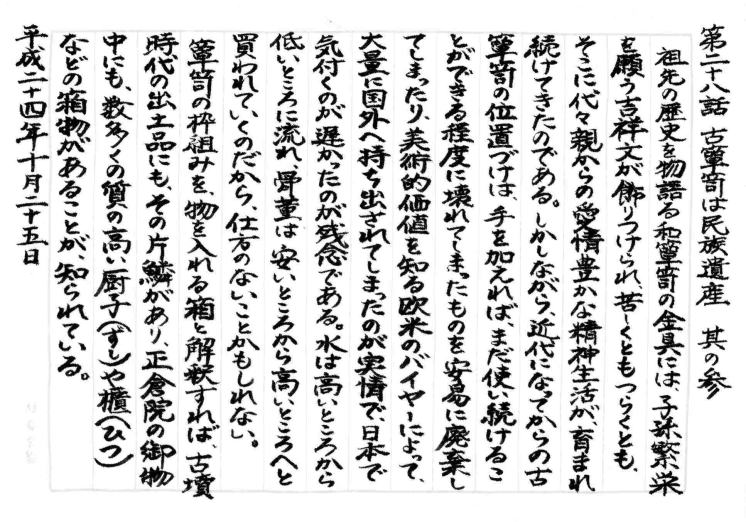 第二十八話 古箪笥は民族遺産 其の参
祖先の歴史を物語る和箪笥の金具には、子孫繁栄
を願う吉祥文が飾りつけられ、苦しくともつらくとも、
そこに代々親からの愛情豊かな精神生活が、育まれ
続けてきたのである。しかしながら、近代になってからの古
箪笥の位置づけは、手を加えれば、まだ使い続けるこ
とができる程度に壊れてしまったものを安易に廃棄し
てしまったり、美術的価値を知る欧米のバイヤーによって、
大量に国外へ持ち出されてしまったのが実情で、日本で
気付くのが遅かったのが残念である。水は高いところから
低いところに流れ、骨董は安いところから高いところへと
買われていくのだから、仕方のないことかもしれない。
箪笥の枠組みを、物を入れる箱と解釈すれば、古墳
時代の出土品にも、その片鱗があり、正倉院の御物
中にも、数多くの質の高い厨子(ずし)や櫃(ひつ)
などの箱物があることが、知られている。
平成二十四年十月二十五日